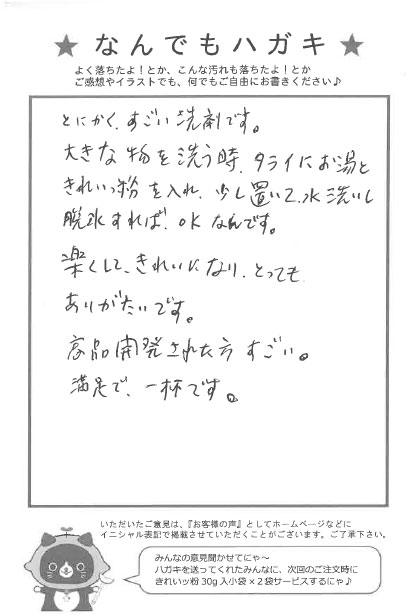 ★なんでもハガキ★
よく落ちたよ！とか、こんな汚れも落ちたよ！とか
ご感想やイラストでも、何でもご自由にお書きください♪
とにかく、すごい洗剤です。
大きな物を洗う時、タライにお湯と
きれいっ粉を入れ、少し置いて、水洗いし
脱水すれば、OKなんです。
楽くして、きれいになり、とっても
ありがたいです。
商品開発された方すごい。
満足で、一杯です。
いただいたご意見は、『お客様の声』としてホームページなどに
イニシャル表記で掲載させていただくことがございます。ご了承下さい。
みんなの意見聞かせてにゃ～
ハガキを送ってくれたみんなに、次回のご注文時に
きれいッ粉30g入小袋×２袋サービスするにゃ♪